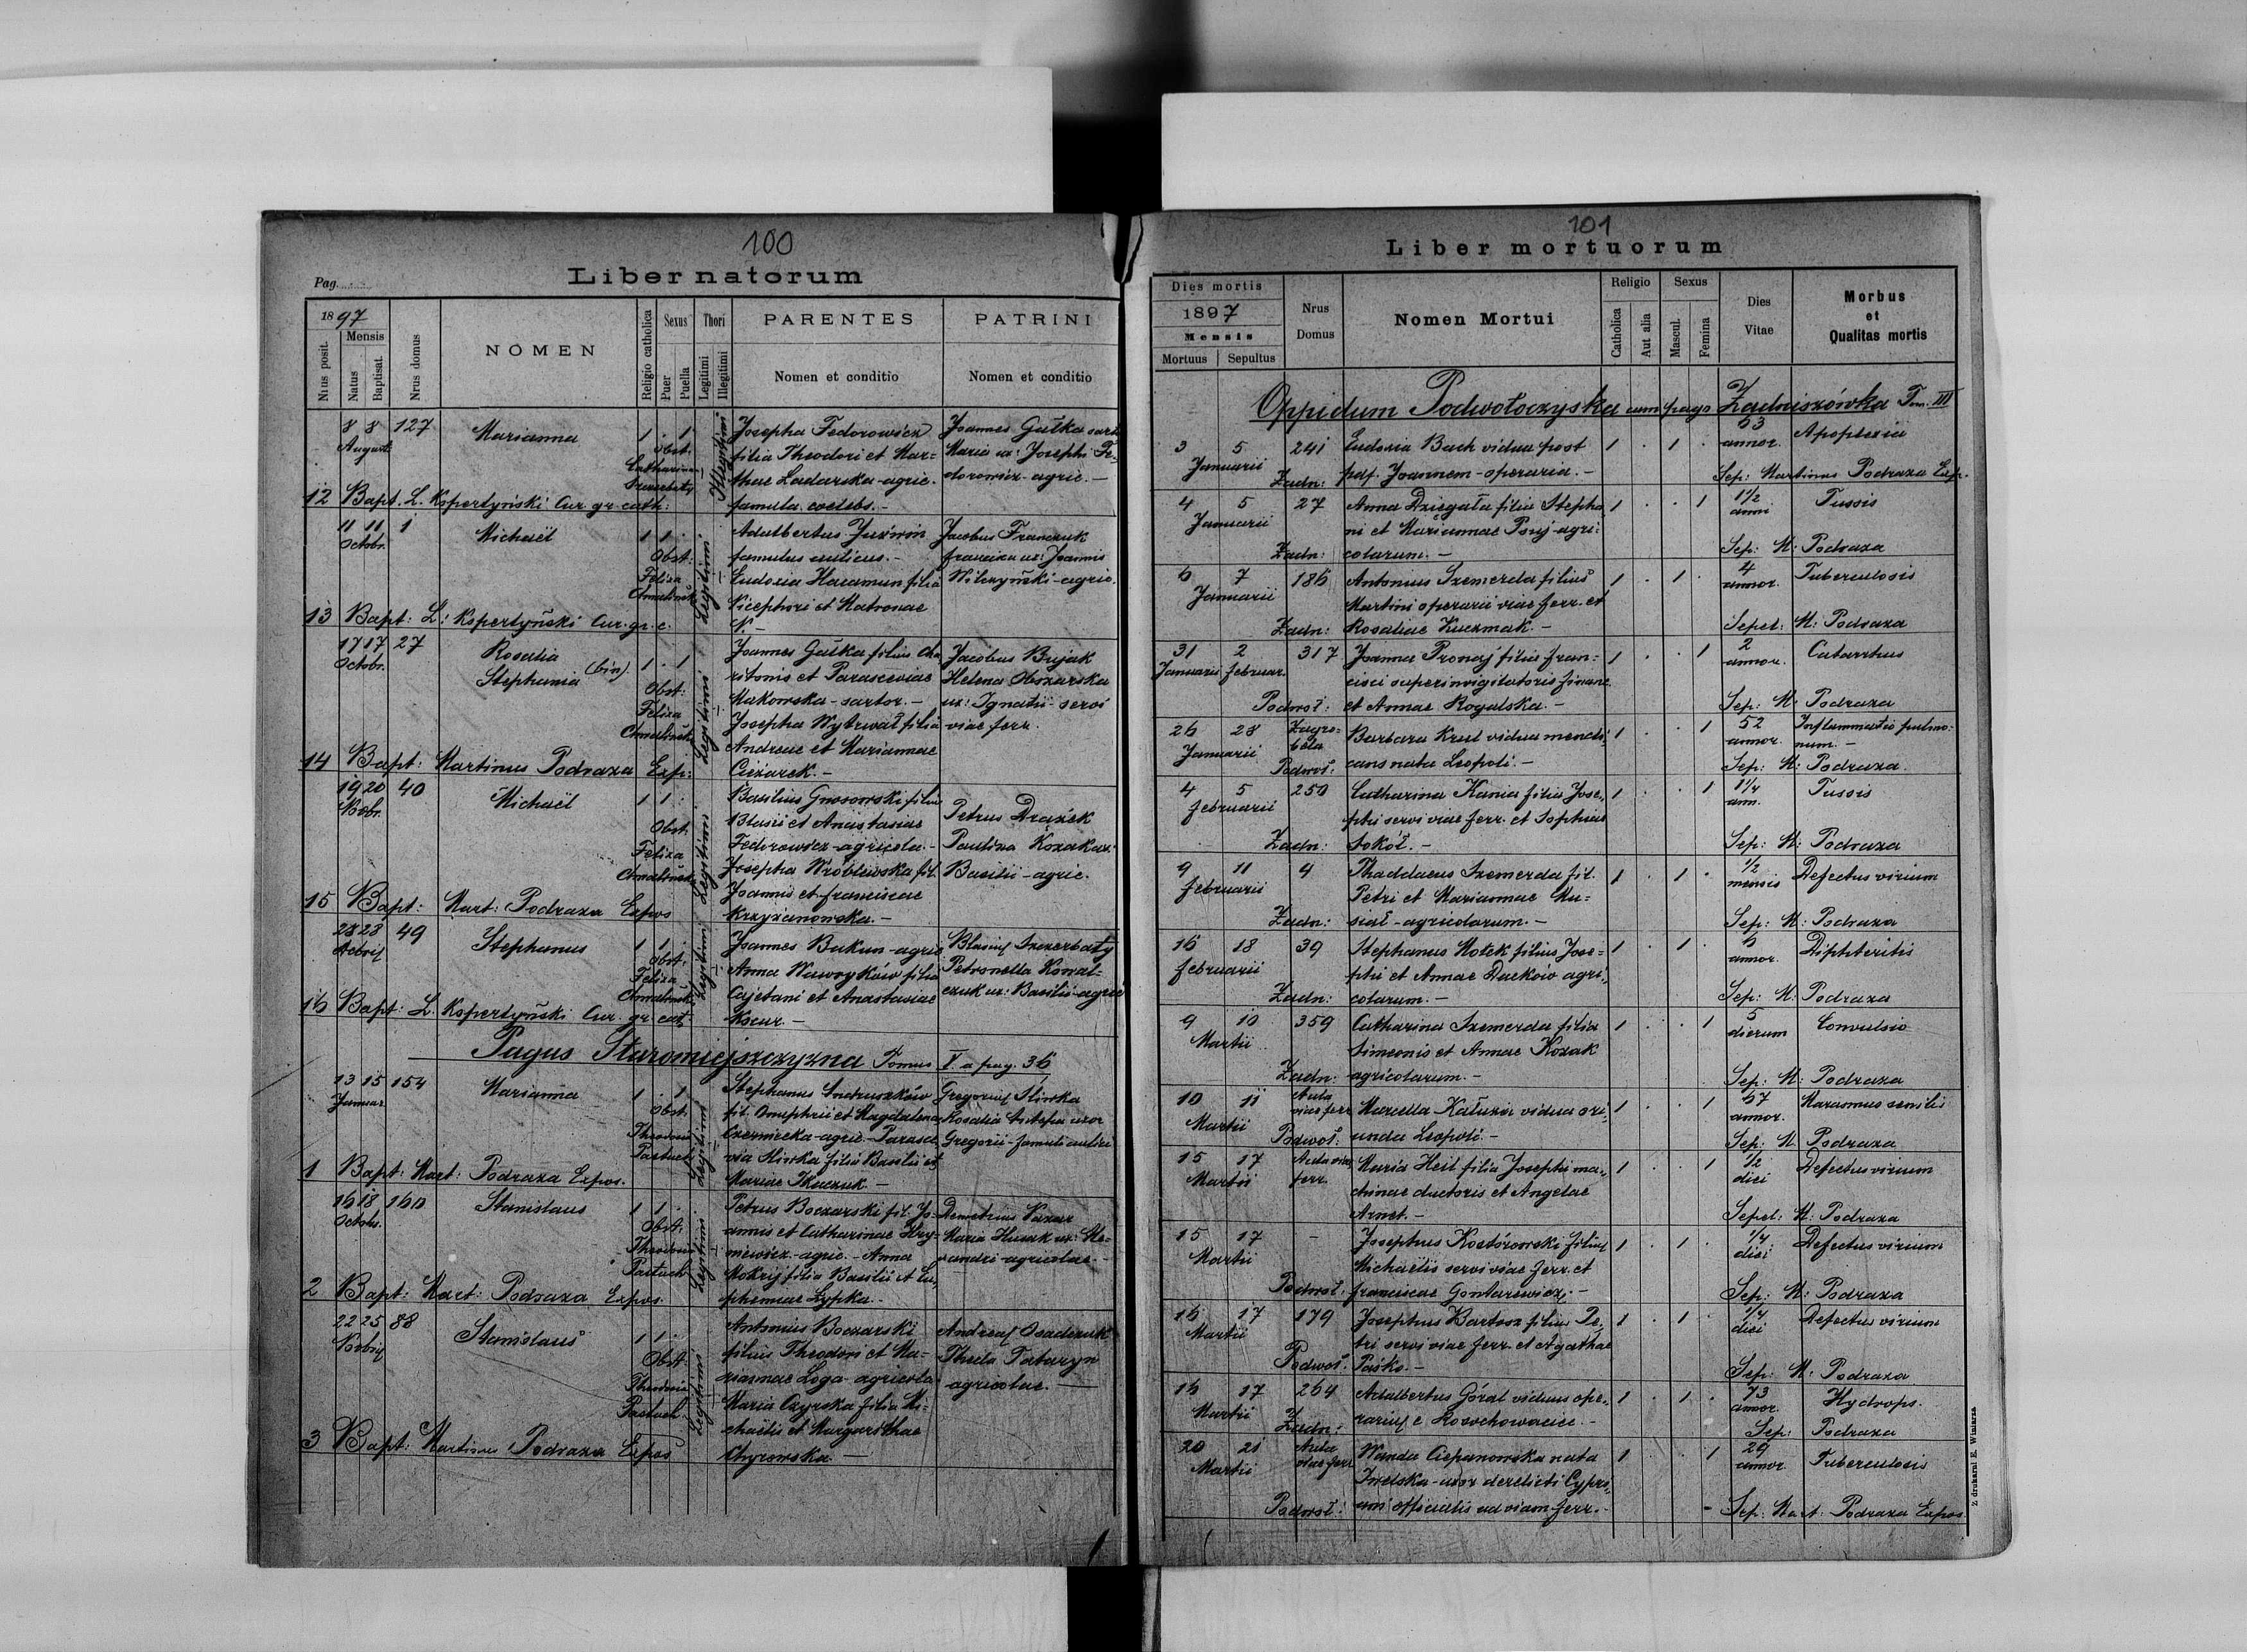 100
Pag.
Liber natorum
1897
Mensis
Nrus posit.
Natus
Baptisat.
Nrus domus
NOMEN
Religio catholica
Sexus
Puer
Puella
Thori
Legitimi
Illegitimi
PARENTES
Nomen et conditio
PATRINI
Nomen et conditio
8 8 127 Marianna 1 . 1 Josepha Fedorowicz Joannes Gałka
August. Obst. filia Theodori et Mar= Maria ux: Josephi Fe=
Catharina Illegitimi thae Ladarska-agric. dorowicz-agric.-
12 Bapt. L. Kspertyński Cur. gr. cath: famula. coelebs.-
11 11 1 Michaël 1 1 . Adalbertus Juzwin Jacobus Franczuk
Octobr. Obst: famulus aulicus.- Francisca ux: Joannis
Feliza Legitimi Eudoxia Haramun filia Wilczyński-agric.
Nicephori et Matronae
13 Bapt: L: Kspertyński Cur. gr. c. N.-
17 17 27 Rosalia 1 . 1 Joannes Gałka filius Cha Jacobus Bujak
Octobr. Stephania (bin) ritonis et Parasceviae Helena Obszarska
Obst: Makowska-sartor.- ux: Ignatii-servi
Feliza Legitimi Josepha Wytrwał filia viae ferr.
Andreae et Mariannae
14 Bapt: Martinus Podraza Exp: Ciężarek.-
19 20 40 Michaël 1 1 . Basilius Gnosowski filius
Novbr. Obst. Blasii et Anastasiae Petrus Drążek
Feliza Legitimi Fedorowicz-agricola.- Paulina Kozak ux:
Josepha Wróblewska fil. Basilii-agric.
Joannis et Franciscae
15 Bapt: Mart: Podraza Expos Krzyżanowska.-
28 28 49 Stephanus 1 1 . Joannes Bakun-agric Blasius Szczerbaty
Obst. Anna Wawryków filia Petronella Kowal=
Feliza Legitimi Cajetani et Anastasiae czuk ux: Basilii-agric
16 Bapt: L. Kspertyński Cur. gr. cat. Kocur.-
Pagus Staromiejszczyzna Tomus V. a pag. 36
13 15 154 Marianna 1 . 1 Stephanus Andruszków Gregorius Slinka
Januar. Obst. fil. Onuphrii et Magdalena Rosalia uxor
Theodosia Legitimi Czernicka-agric-Parasce Gregorii-famuli aulici
Pastuch via Slinka filia Basilii et
1 Bapt: Mart: Podraza Expos. Mariae Tkaczuk.-
16 18 160 Stanislaus 1 1 . Petrus Boczarski fil. Jo= Demetrius
Octobr. Obst. annis et Catharinae Hry= Maria Husak ux: Ale=
Theodosia Legitimi niewicz-agric.-Anna xandri-agricolae.-
Pastuch Mokrij filia Basilii et Eu,
2 Bapt: Mart: Podraza Expos. phemiae Lypka.-
22 25 88 Stanislaus 1 1 . Antonius Boczarski Andreas Osadczuk
Novbris Obst: filius Theodori et Ma= Thecla Tataryn
Theodosia Legitimi riannae Loga-agricola agricolae.-
Pastuch Maria Czyrska filia Mi=
chaëlis et Margarethae
3 Bapt: Martinus Podraza Expos Chyrowska.-
101
Liber mortuorum
Dies mortis
1897
Mensis
Mortuus
Sepultus
Nrus
Domus
Nomen Mortui
Religio
Catholica
Aut alia
Sexus
Mascul.
Femina
Dies
Vitae
Morbus
et
Qualitas mortis
Oppidum Podwołoczyska cum pago Zadniszówka Tom. III
3 5 241 Eudoxia Bach vidua post 1 . 1 . 53 Apoplexia
Januarii pdf. Joannem-operaria.- annor.
Zadn: Sep: Martinus Podraza Exp.
4 5 27 Anna Dziegała filia Stepha 1 . . 1 1½ Tussis
Januarii ni et Mariannae Psuj-agri: anni
Zadn: colarum.- Sep: M: Podraza
6 7 186 Antonius Szemerda filius 1 . 1 . 4 Tuberculosis
Januarii Martini operarii viae ferr. et annor.
Zadn: Rosaliae Kuczmak.- Sepel: M: Podraza
31 2 317 Joanna Pronaj filia Fran= 1 . . 1 2 Catarrhus
Januarii Februar. cisci superinvigilatoris financ. annor.
Podwoł: et Annae Rogalska.- Sep: M: Podraza
26 28 Zagro= Barbara Krul vidua mendi, 1 . . 1 52 Inflammatio pulmo=
Januarii bela cans nata Leopoli.- annor. num.-
Podwoł: Sep: M: Podraza
4 5 250 Catharina Kania filia Jose, 1 . . 1 1¼ Tussis
Februarii phi servi viae ferr. et Sophiae ann.
Zadn: Sokół.- Sep: M: Podraza
9 11 4 Thaddaeus Szemerda fil. 1 . 1 . ½ Defectus virium
Februarii Petri et Mariannae Mu= mensis
Zadn: siał-agricolarum.- Sep: M: Podraza
16 18 39 Stephanus Motek filius Jose= 1 . 1 . 6 Diphteritis
Februarii phi et Annae Daćków agri, annor.
Zadn: colarum.- Sep: M: Podraza
9 10 359 Catharina Szemerda filia 1 . . 1 5 Convulsio
Martii Simeonis et Annae Kozak dierum
Zadn: agricolarum.- Sep: M: Podraza
10 11 Aula Marcella Kałuza vidua ori, 1 . . 1 67 Marasmus senilis
Martii viae ferr unda Leopoli- annor.
Podwoł: Sep: M. Podraza
15 17 Aula viae Maria Heil filia Josephi ma, 1 . . 1 ½ Defectus virium
Martii ferr. chinae ductoris et Angelae diei
Arnet.- Sepel: M: Podraza
15 17 - Josephus Kostórowski filius 1 . 1 . ¼ Defectus virium
Martii Michaëlis servi viae ferr. et diei
Podwoł: Franciscae Gontarewicz.- Sep: M: Podraza
16 17 179 Josephus Bartosz filius Pe, 1 . 1 . ¼ Defectus virium
Martii tri servi viae ferr. et Agathae diei
Podwoł: Paśko.- Sep: M: Podraza
16 17 264 Adalbertus Góral viduus ope, 1 . 1 . 73 Hydrops.
Martii rarius e Rosochowaciec.- annor.
Zadn: Sep: Podraza
20 21 Aula Wanda Ciepanowska nata 1 . . 1 29 Tuberculosis
Martii viae ferr Iwelska-uxor derelicti Cypri, annor.
Podwoł: ani officialis ad viam ferr.- Sep: Mart: Podraza Expos.
Z drukarni E. Winiarza